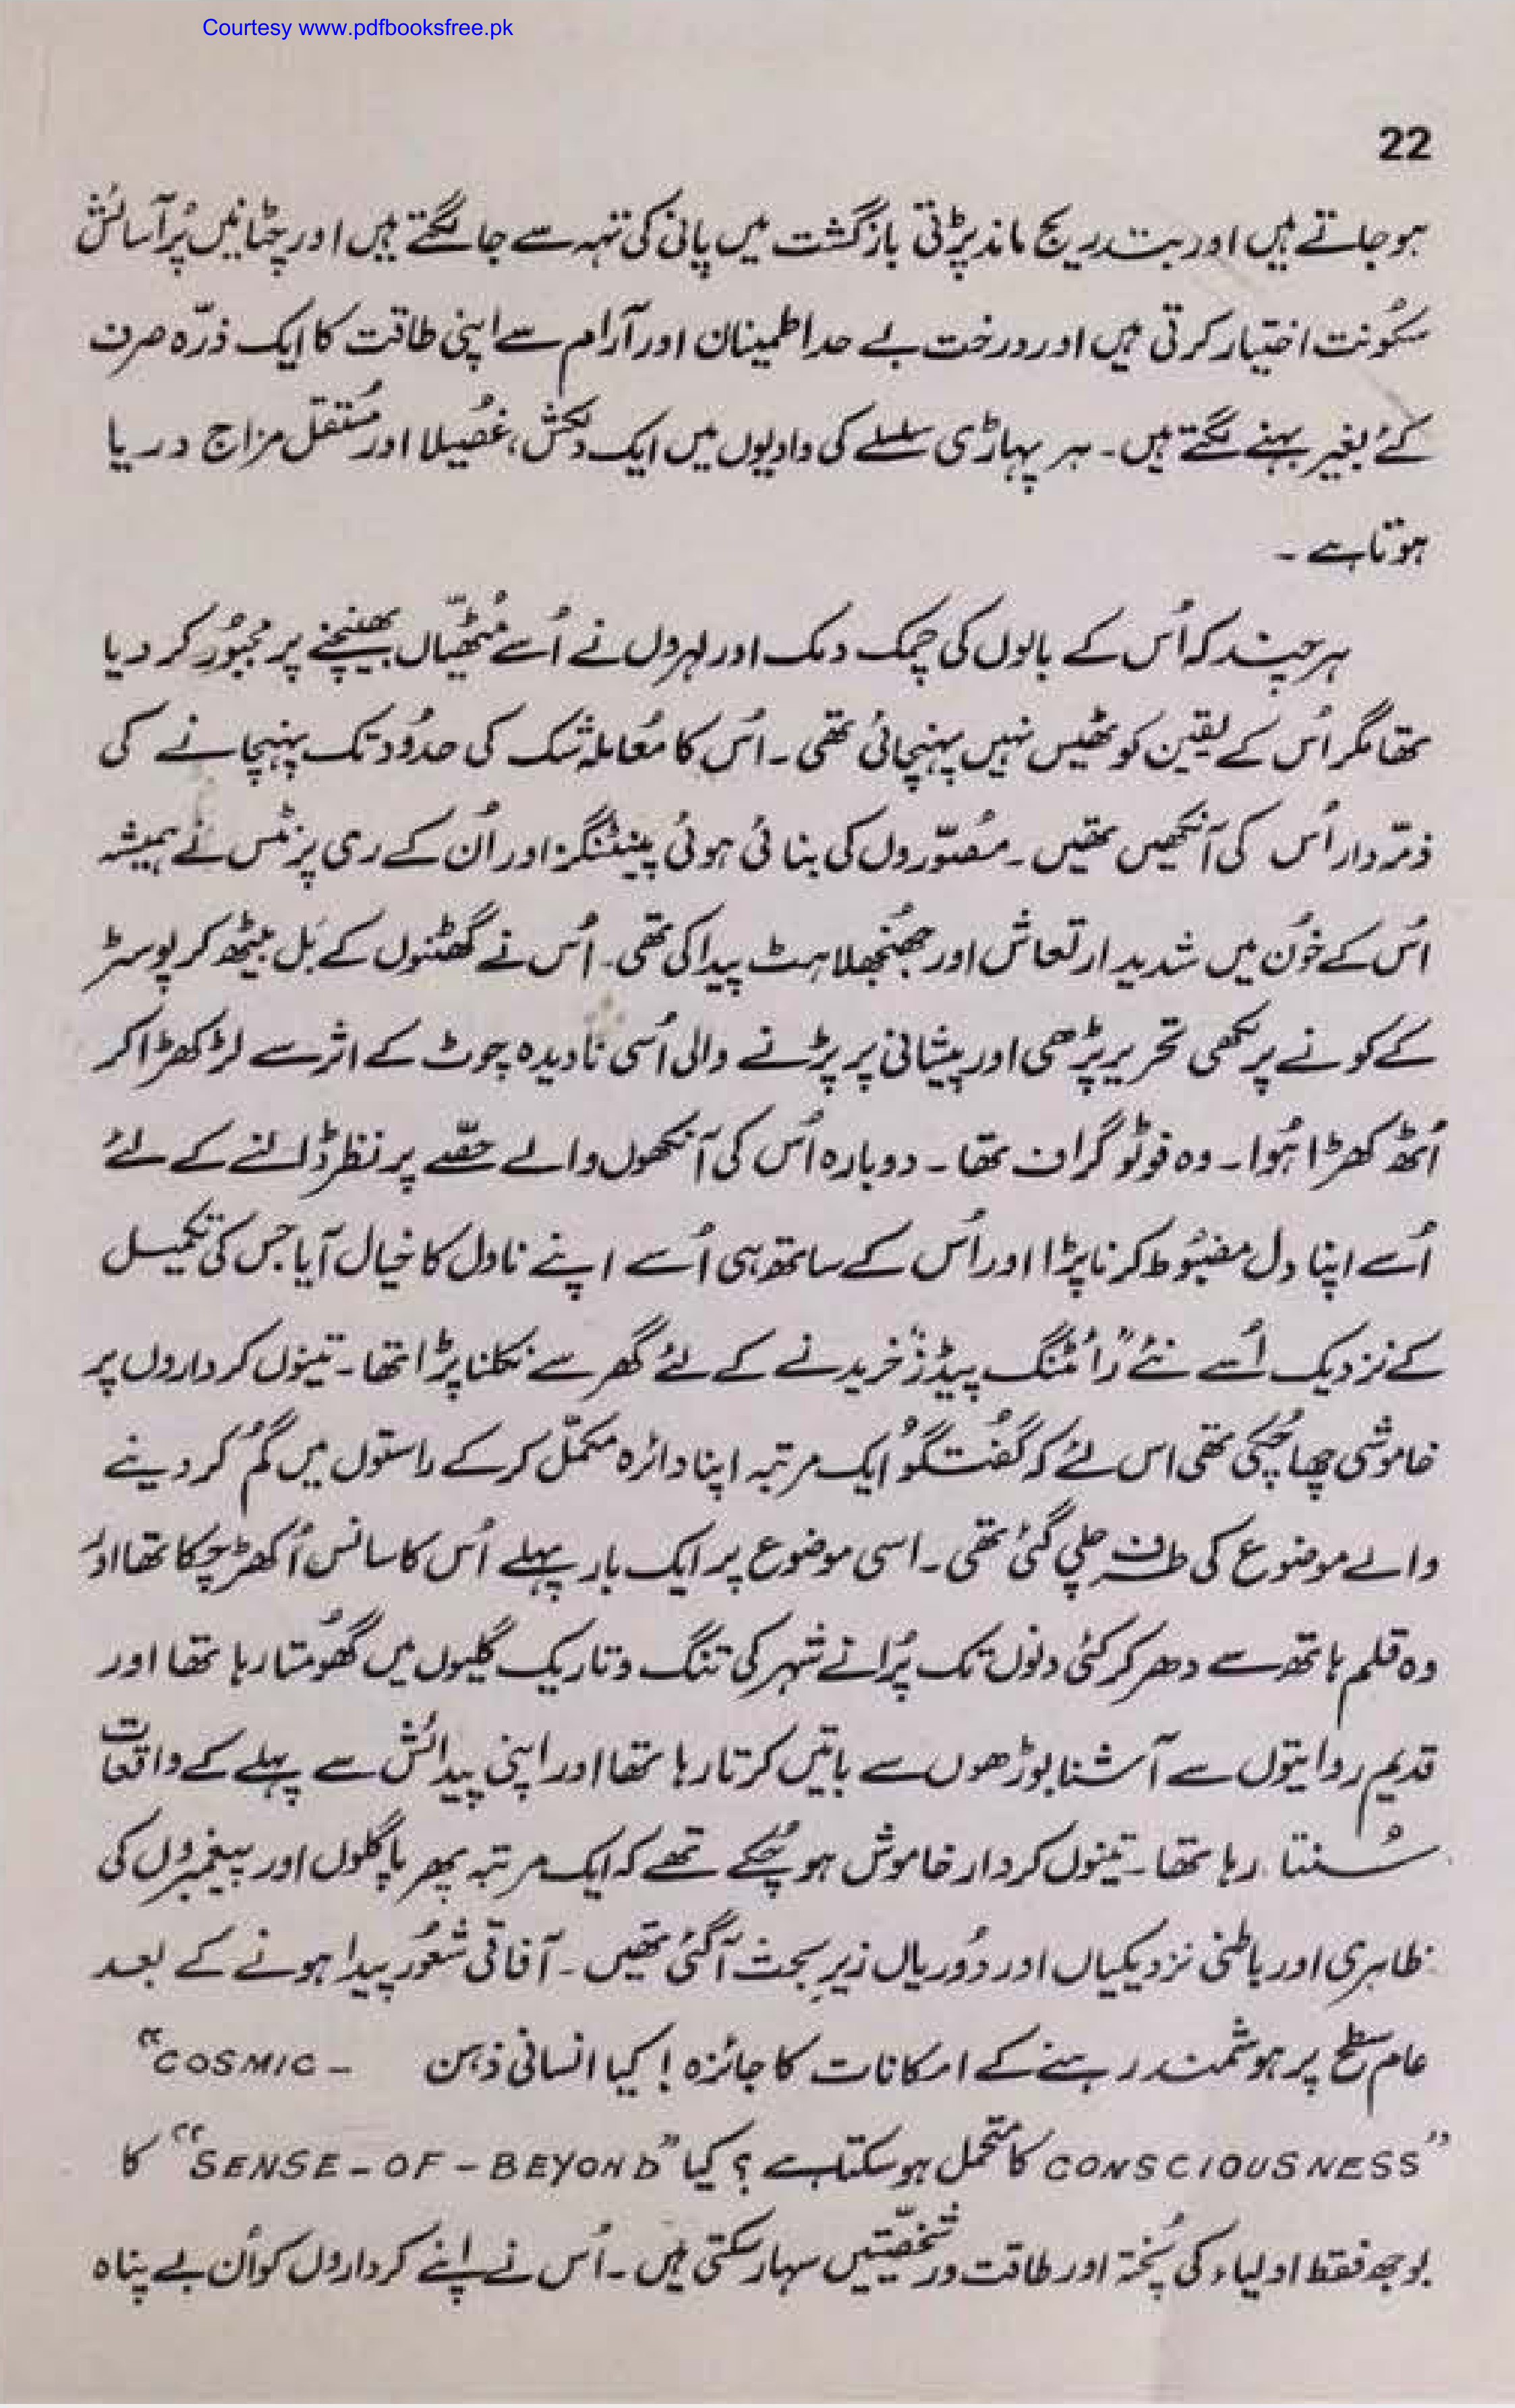 Courtesy www.pdfbooksfree.pk
22
ہو جاتے ہیں اور بتدریج ماند پڑتی بازگشت میں پانی کی تہہ سے جا لگتے ہیں اور چٹانیں پُرآسائش
سکُونت اختیار کرتی ہیں اور درخت بے حد اطمینان اور آرام سے اپنی طاقت کا ایک ذرّہ صرف
کئے بغیر بہنے لگتے ہیں۔ ہر پہاڑی سلسلے کی وادیوں میں ایک دلکش، غُصیلا اور مُستقل مزاج دریا
ہوتا ہے۔
ہر چند کہ اُس کے بالوں کی چمک دمک اور لہروں نے اُسے مُٹھیّاں بھینچنے پر مجبُور کر دیا
تھا مگر اُس کے یقین کو ٹھیس نہیں پہنچائی تھی۔ اُس کا مُعاملہ شک کی حدُود تک پہنچانے کی
ذمّہ دار اُس کی آنکھیں تھیں۔ مصُوّروں کی بنائی ہوئی پینٹنگز اور اُن کے ری پرنٹس نے ہمیشہ
اُس کے خُون میں شدید ارتعاش اور جھُنجھلاہٹ پیدا کی تھی۔ اُس نے گھٹنوں کے بَل بیٹھ کر پوسٹر
کے کونے پر لکھی تحریر پڑھی اور پیشانی پر پڑنے والی اُسی نادیدہ چوٹ کے اثر سے لڑکھڑا کر
اُٹھ کھڑا ہُوا۔ وہ فوٹو گراف تھا۔ دوبارہ اُس کی آنکھوں والے حصّے پر نظر ڈالنے کے لئے
اُسے اپنا دل مضبُوط کرنا پڑا اور اُس کے ساتھ ہی اُسے اپنے ناول کا خیال آیا جس کی تکمیل
کے نزدیک اُسے نئے "رائٹنگ پیڈز" خریدنے کے لئے گھر سے نکلنا پڑا تھا۔ تینوں کرداروں پر
خاموشی چھا چُکی تھی اس لئے کہ گفُتگُو ایک مرتبہ اپنا دائرہ مکمّل کر کے راستوں میں گُم کر دینے
والے موضوع کی طرف چلی گئی تھی۔ اسی موضوع پر ایک بار پہلے اُس کا سانس اُکھڑ چکا تھا اور
وہ قلم ہاتھ سے دھر کر کئی دنوں تک پُرانے شہر کی تنگ و تاریک گلیوں میں گھُومتا رہا تھا اور
قدیم روایتوں سے آشنا بوڑھوں سے باتیں کرتا رہا تھا اور اپنی پیدائش سے پہلے کے واقعات
سُنتا رہا تھا۔ تینوں کردار خاموش ہو چُکے تھے کہ ایک مرتبہ پھر پاگلوں اور پیغمبروں کی
ظاہری اور باطنی نزدیکیاں اور دُوریاں زیرِ بحث آ گئی تھیں۔ آفاقی شعُور پیدا ہونے کے بعد
عام سطح پر ہوشمند رہنے کے امکانات کا جائزہ! کیا انسانی ذہن "COSMIC -
CONSCIOUSNESS" کا متحمل ہو سکتا ہے؟ کیا "SENSE-OF-BEYOND" کا
بوجھ فقط اولیاء کی پُختہ اور طاقت ور شخصیّتیں سہار سکتی ہیں۔ اُس نے اپنے کرداروں کو اُن بے پناہ